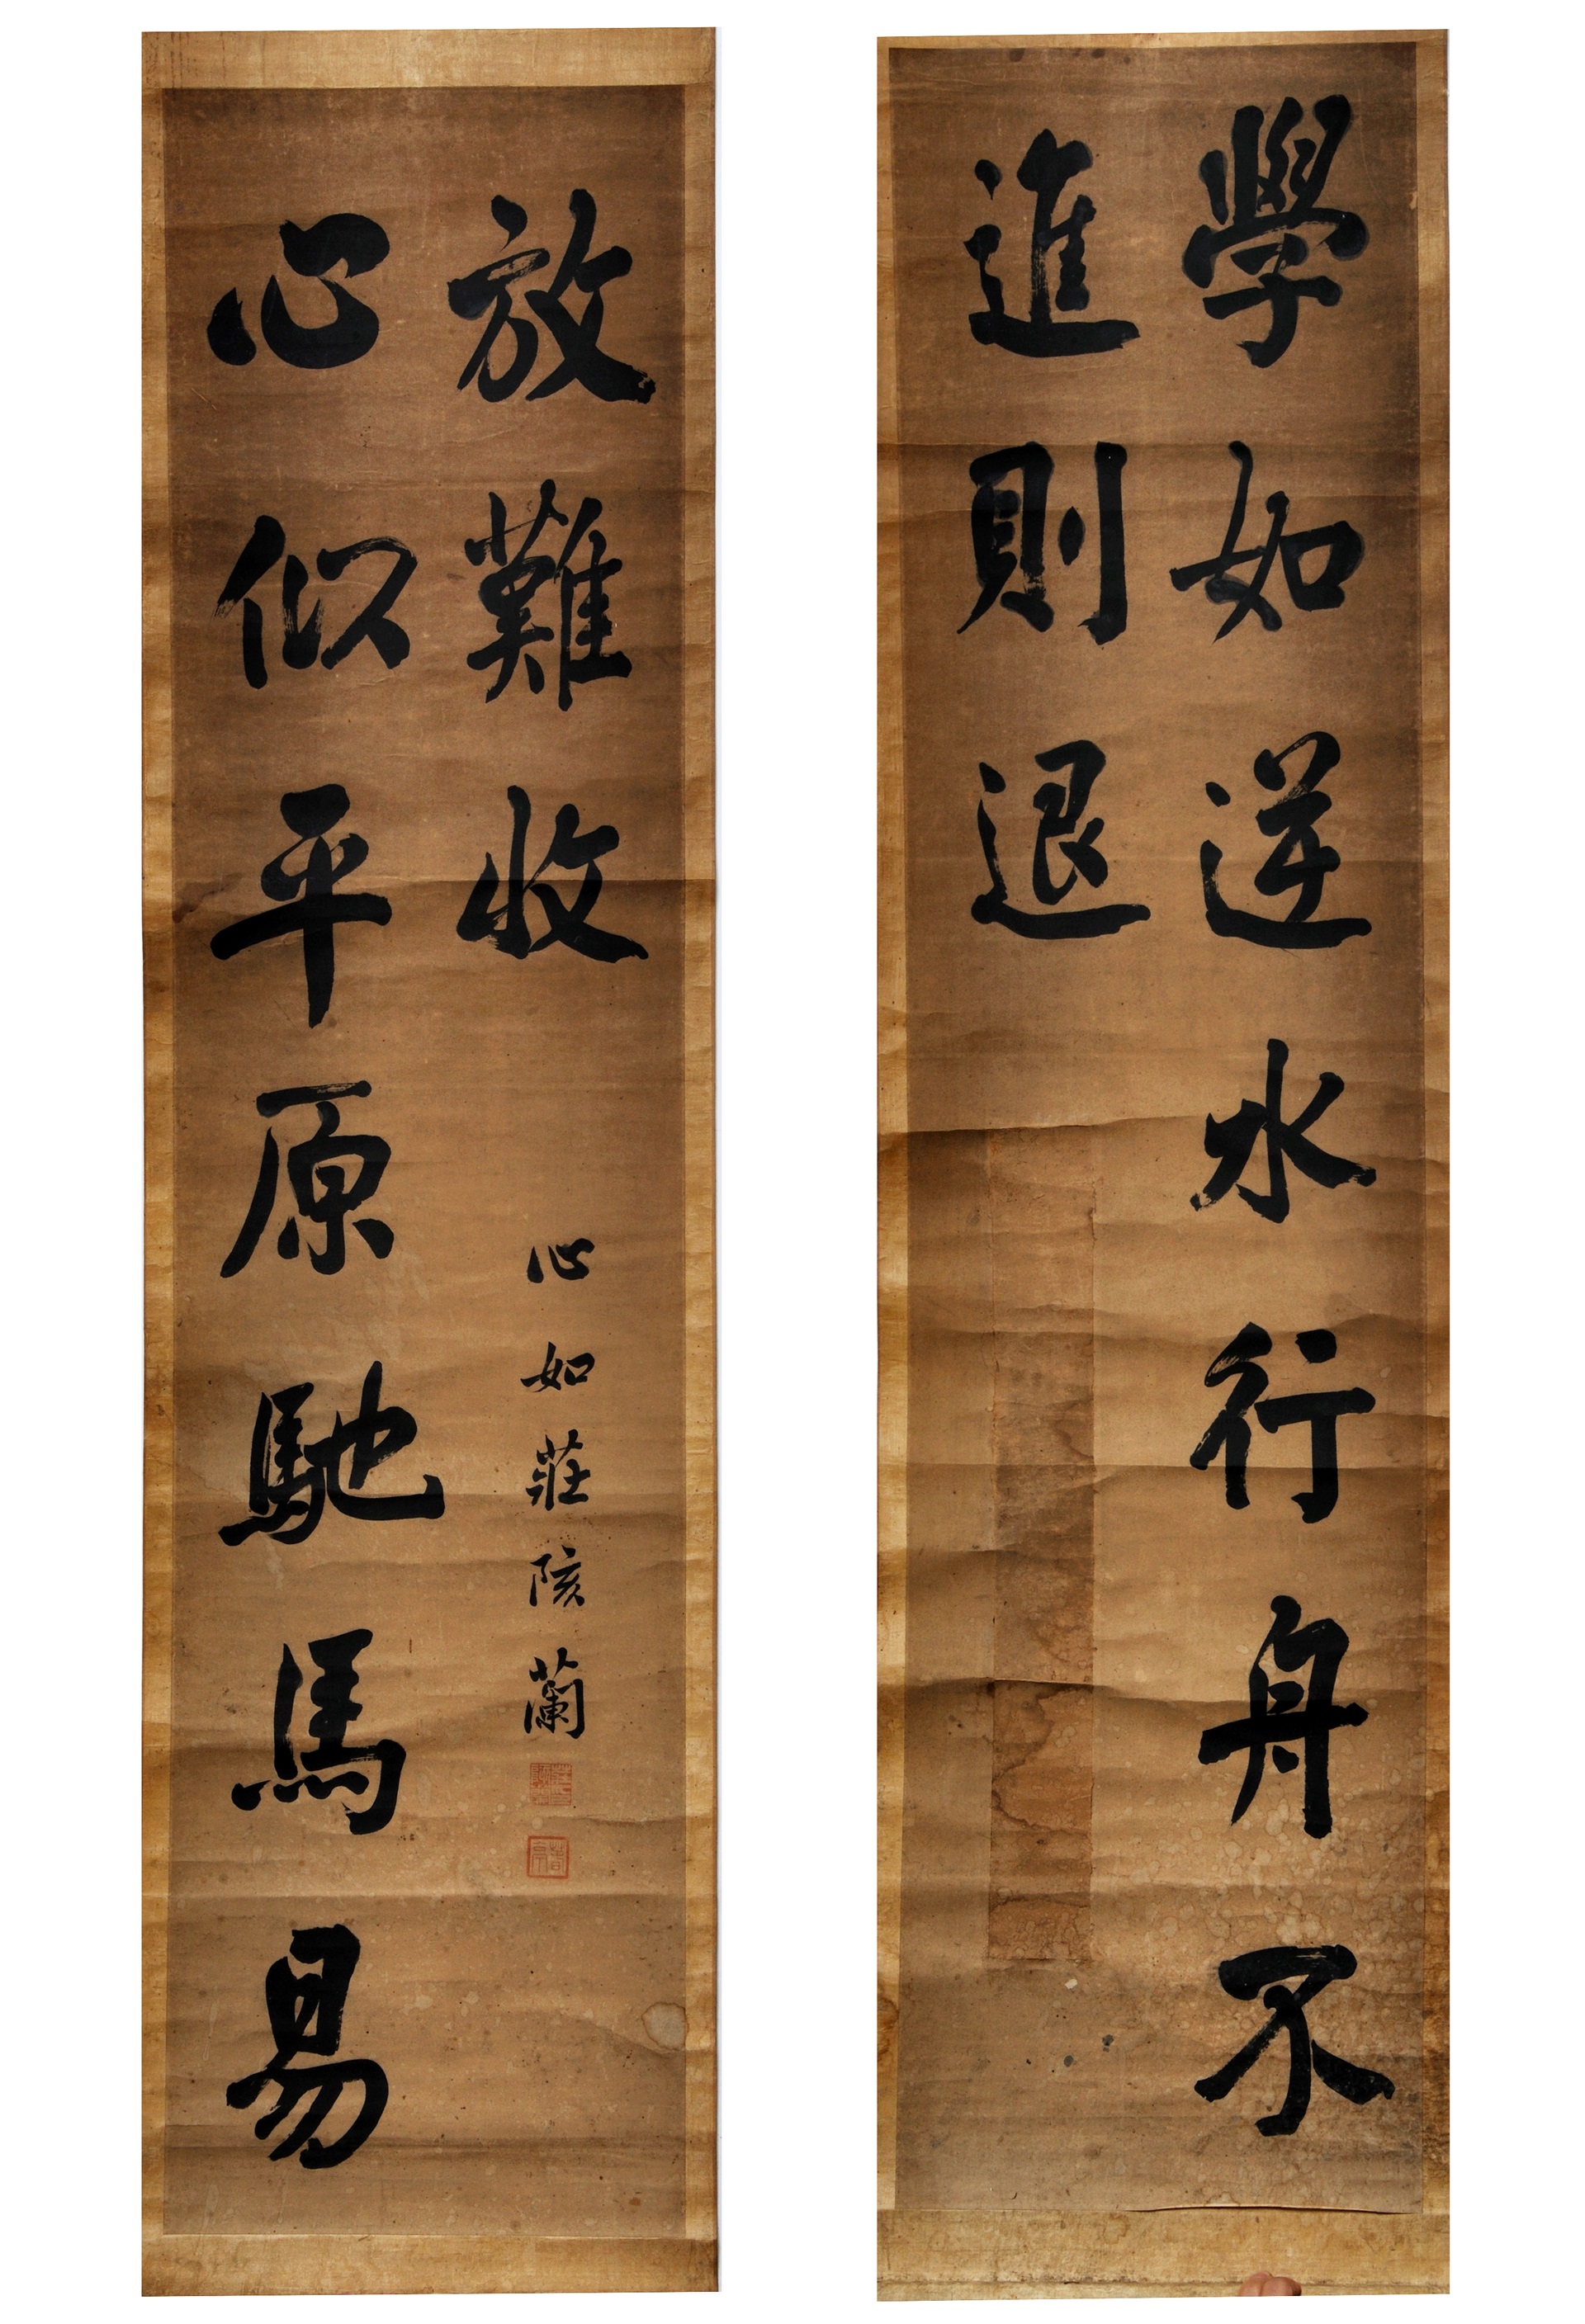 學如逆水行舟不
進則退
心似平原馳馬易
放難收
心如莊陔蘭